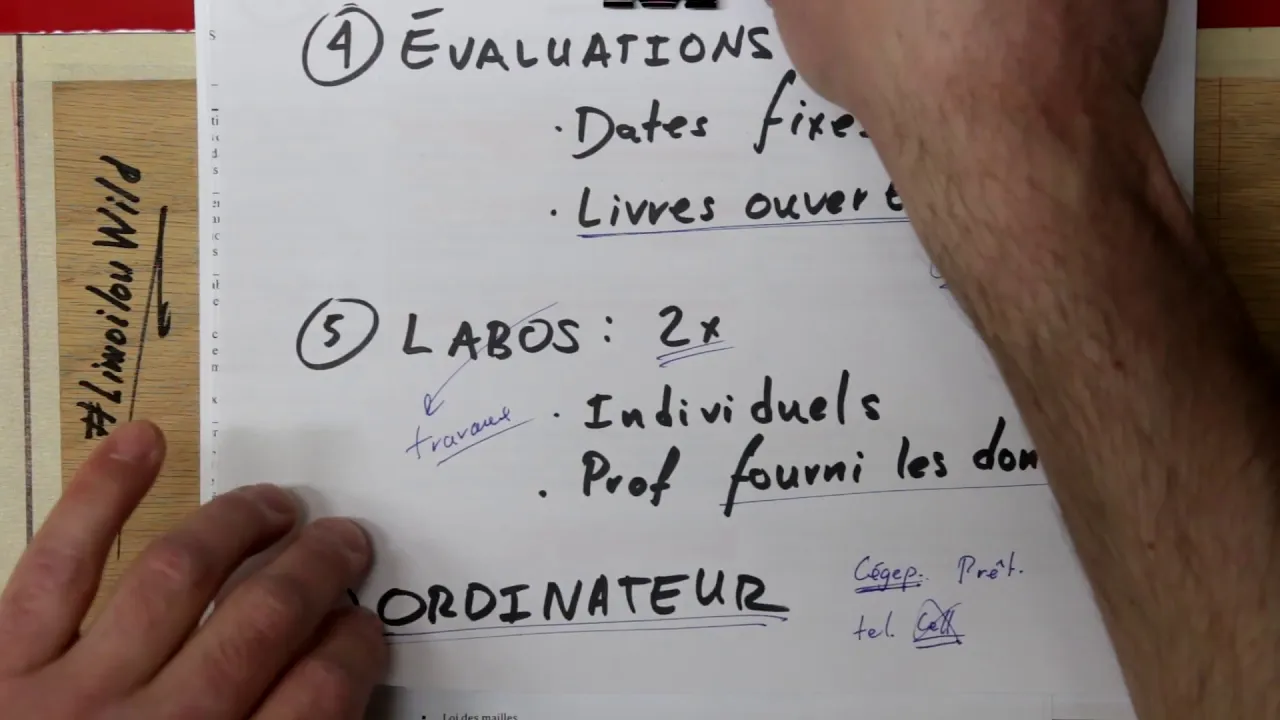 ④ ÉVALUATIONS
· Dates fixes
· Livres ouvert
⑤ LABOS: 2x
travaux
· Individuels
· Prof fourni les don
ORDINATEUR
Cégep. Prêt.
tel. Cell
#Limoilou Wild
• Loi des mailles